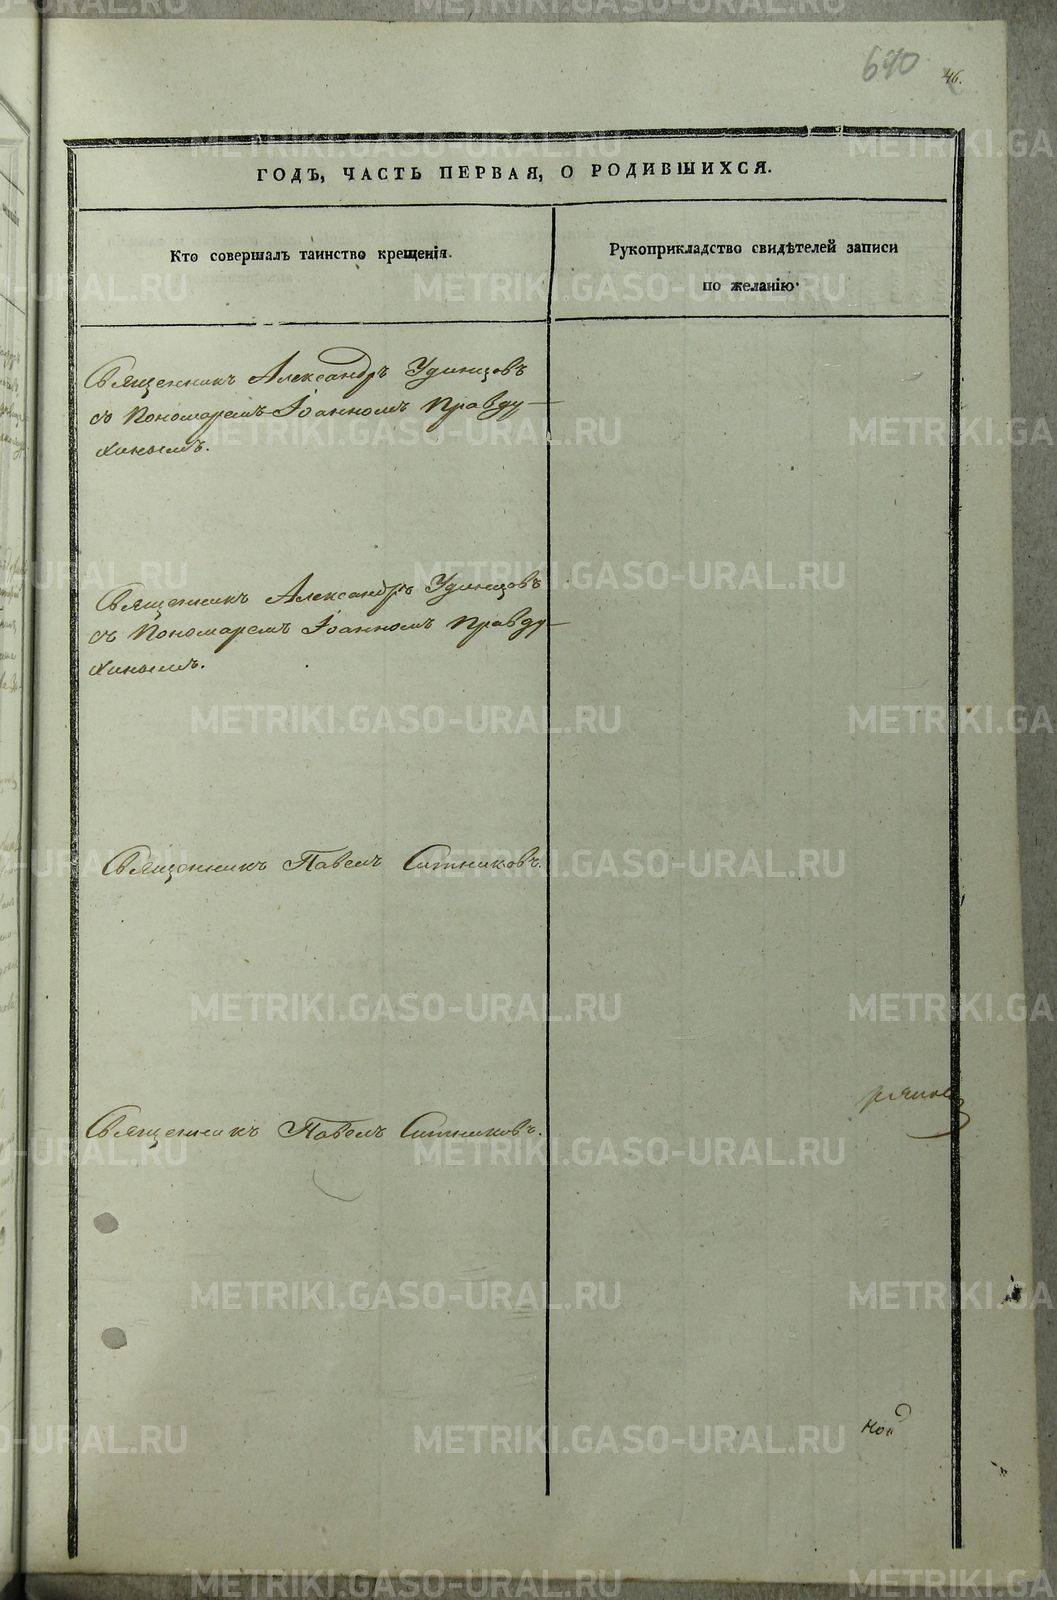 640 46.
ГОДЪ, ЧАСТЬ ПЕРВАЯ, О РОДИВШИХСЯ.
Кто совершалъ таинство крещенія.
Рукоприкладство свидѣтелей записи
по желанію.
Священникъ Александръ Удинцовъ
съ Пономаремъ Іоанномъ Правду-
хинымъ.
Священникъ Александръ Удинцовъ
съ Пономаремъ Іоанномъ Правду-
хинымъ.
Священникъ Павелъ Ситниковъ.
Священникъ Павелъ Ситниковъ.
METRIKI.GASO-URAL.RU